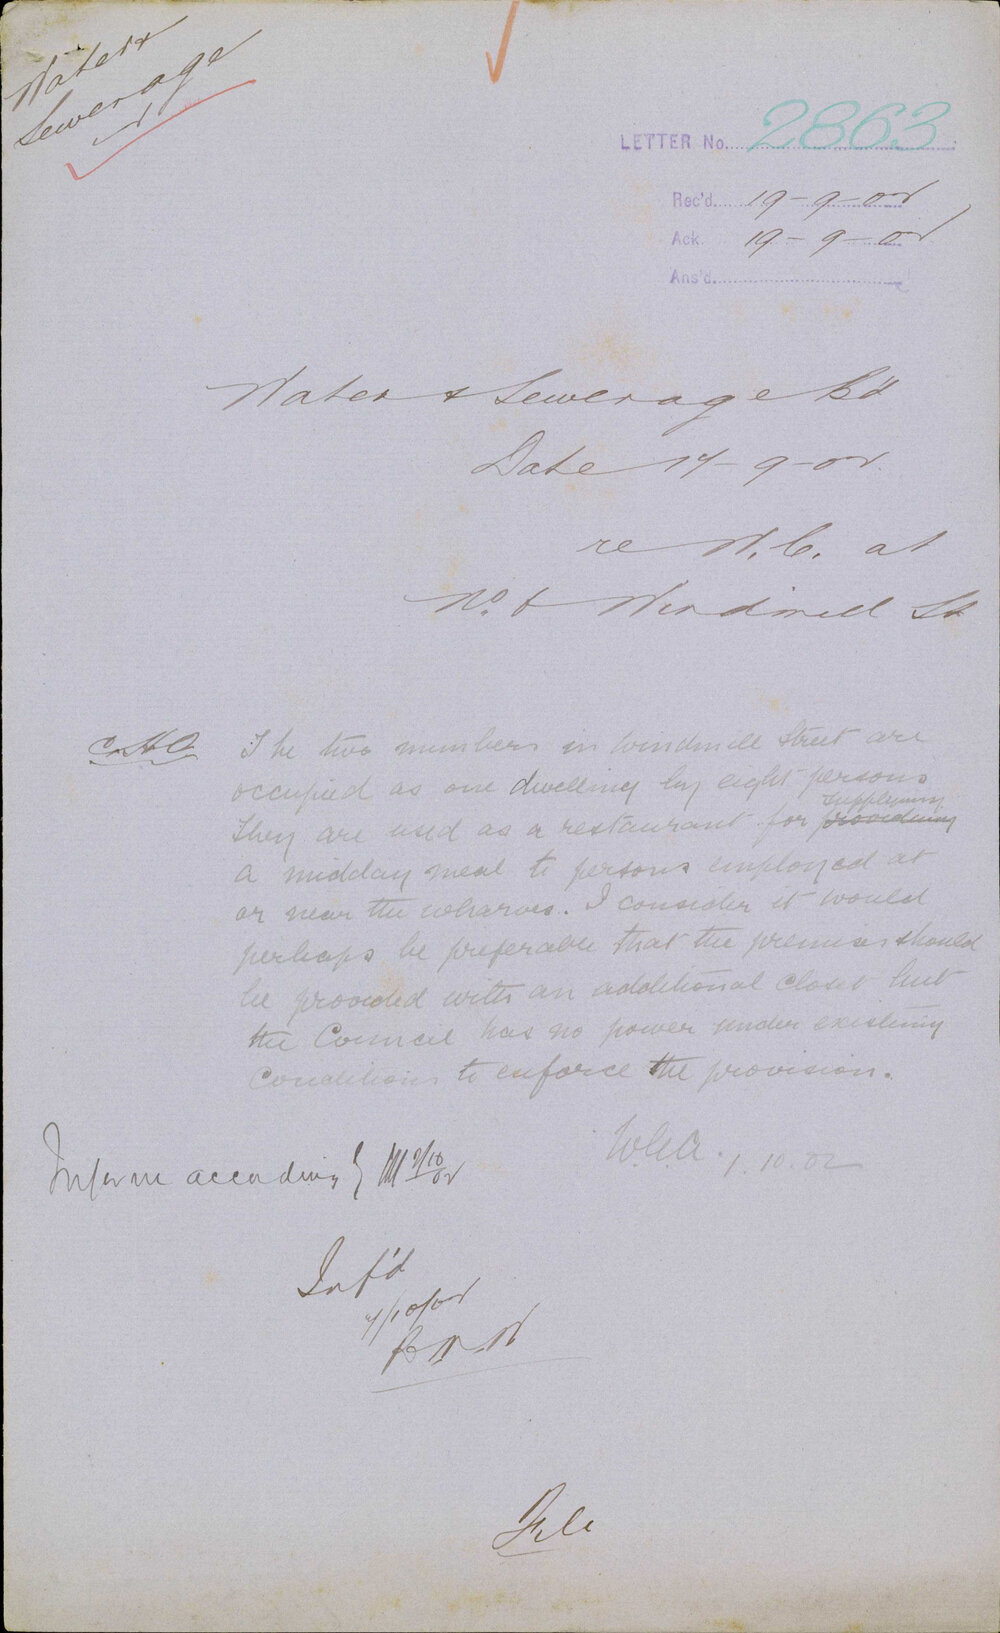 Water &
Sewerage
LETTER No. 2863
Rec'd. 19-9-02
Ack. 19-9-02
Ans'd.
Water & Sewerage B'd
Date 17-9-02
re W.C. at
No. 6 Windmill St
C.H.O.
The two numbers in Windmill Street are
occupied as one dwelling by eight persons
supplying
They are used as a restaurant for providing
a midday meal to persons employed at
or near the wharves. I consider it would
perhaps be preferable that the premises should
be provided with an additional closet but
the Council has no power under existing
Conditions to enforce the provision.
W.G.A. 1.10.02
Inform accordingly 2/10/02
Inf'd
7/10/02
File